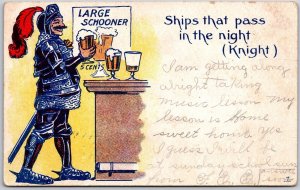 LARGE
SCHOONER
5 CENTS
Ships that pass
in the night
(Knight)
I am getting along
alright taking
music leson my
lesson is Home
sweet home yes
I guess I will be
at sunday school sun
from